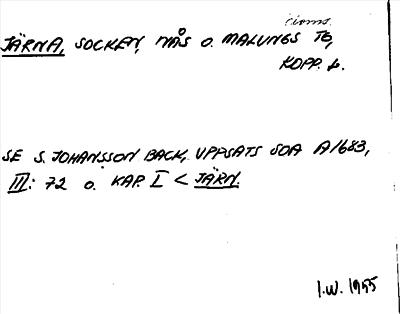 cioms.
JÄRNA, SOCKEN, NÅS O. MALUNGS TG,
KOPP. L.
SE S. JOHANSSON BACK, UPPSATS SOA A1683,
III: 72 O. KAP. I < JÄRN.
I.W. 1955